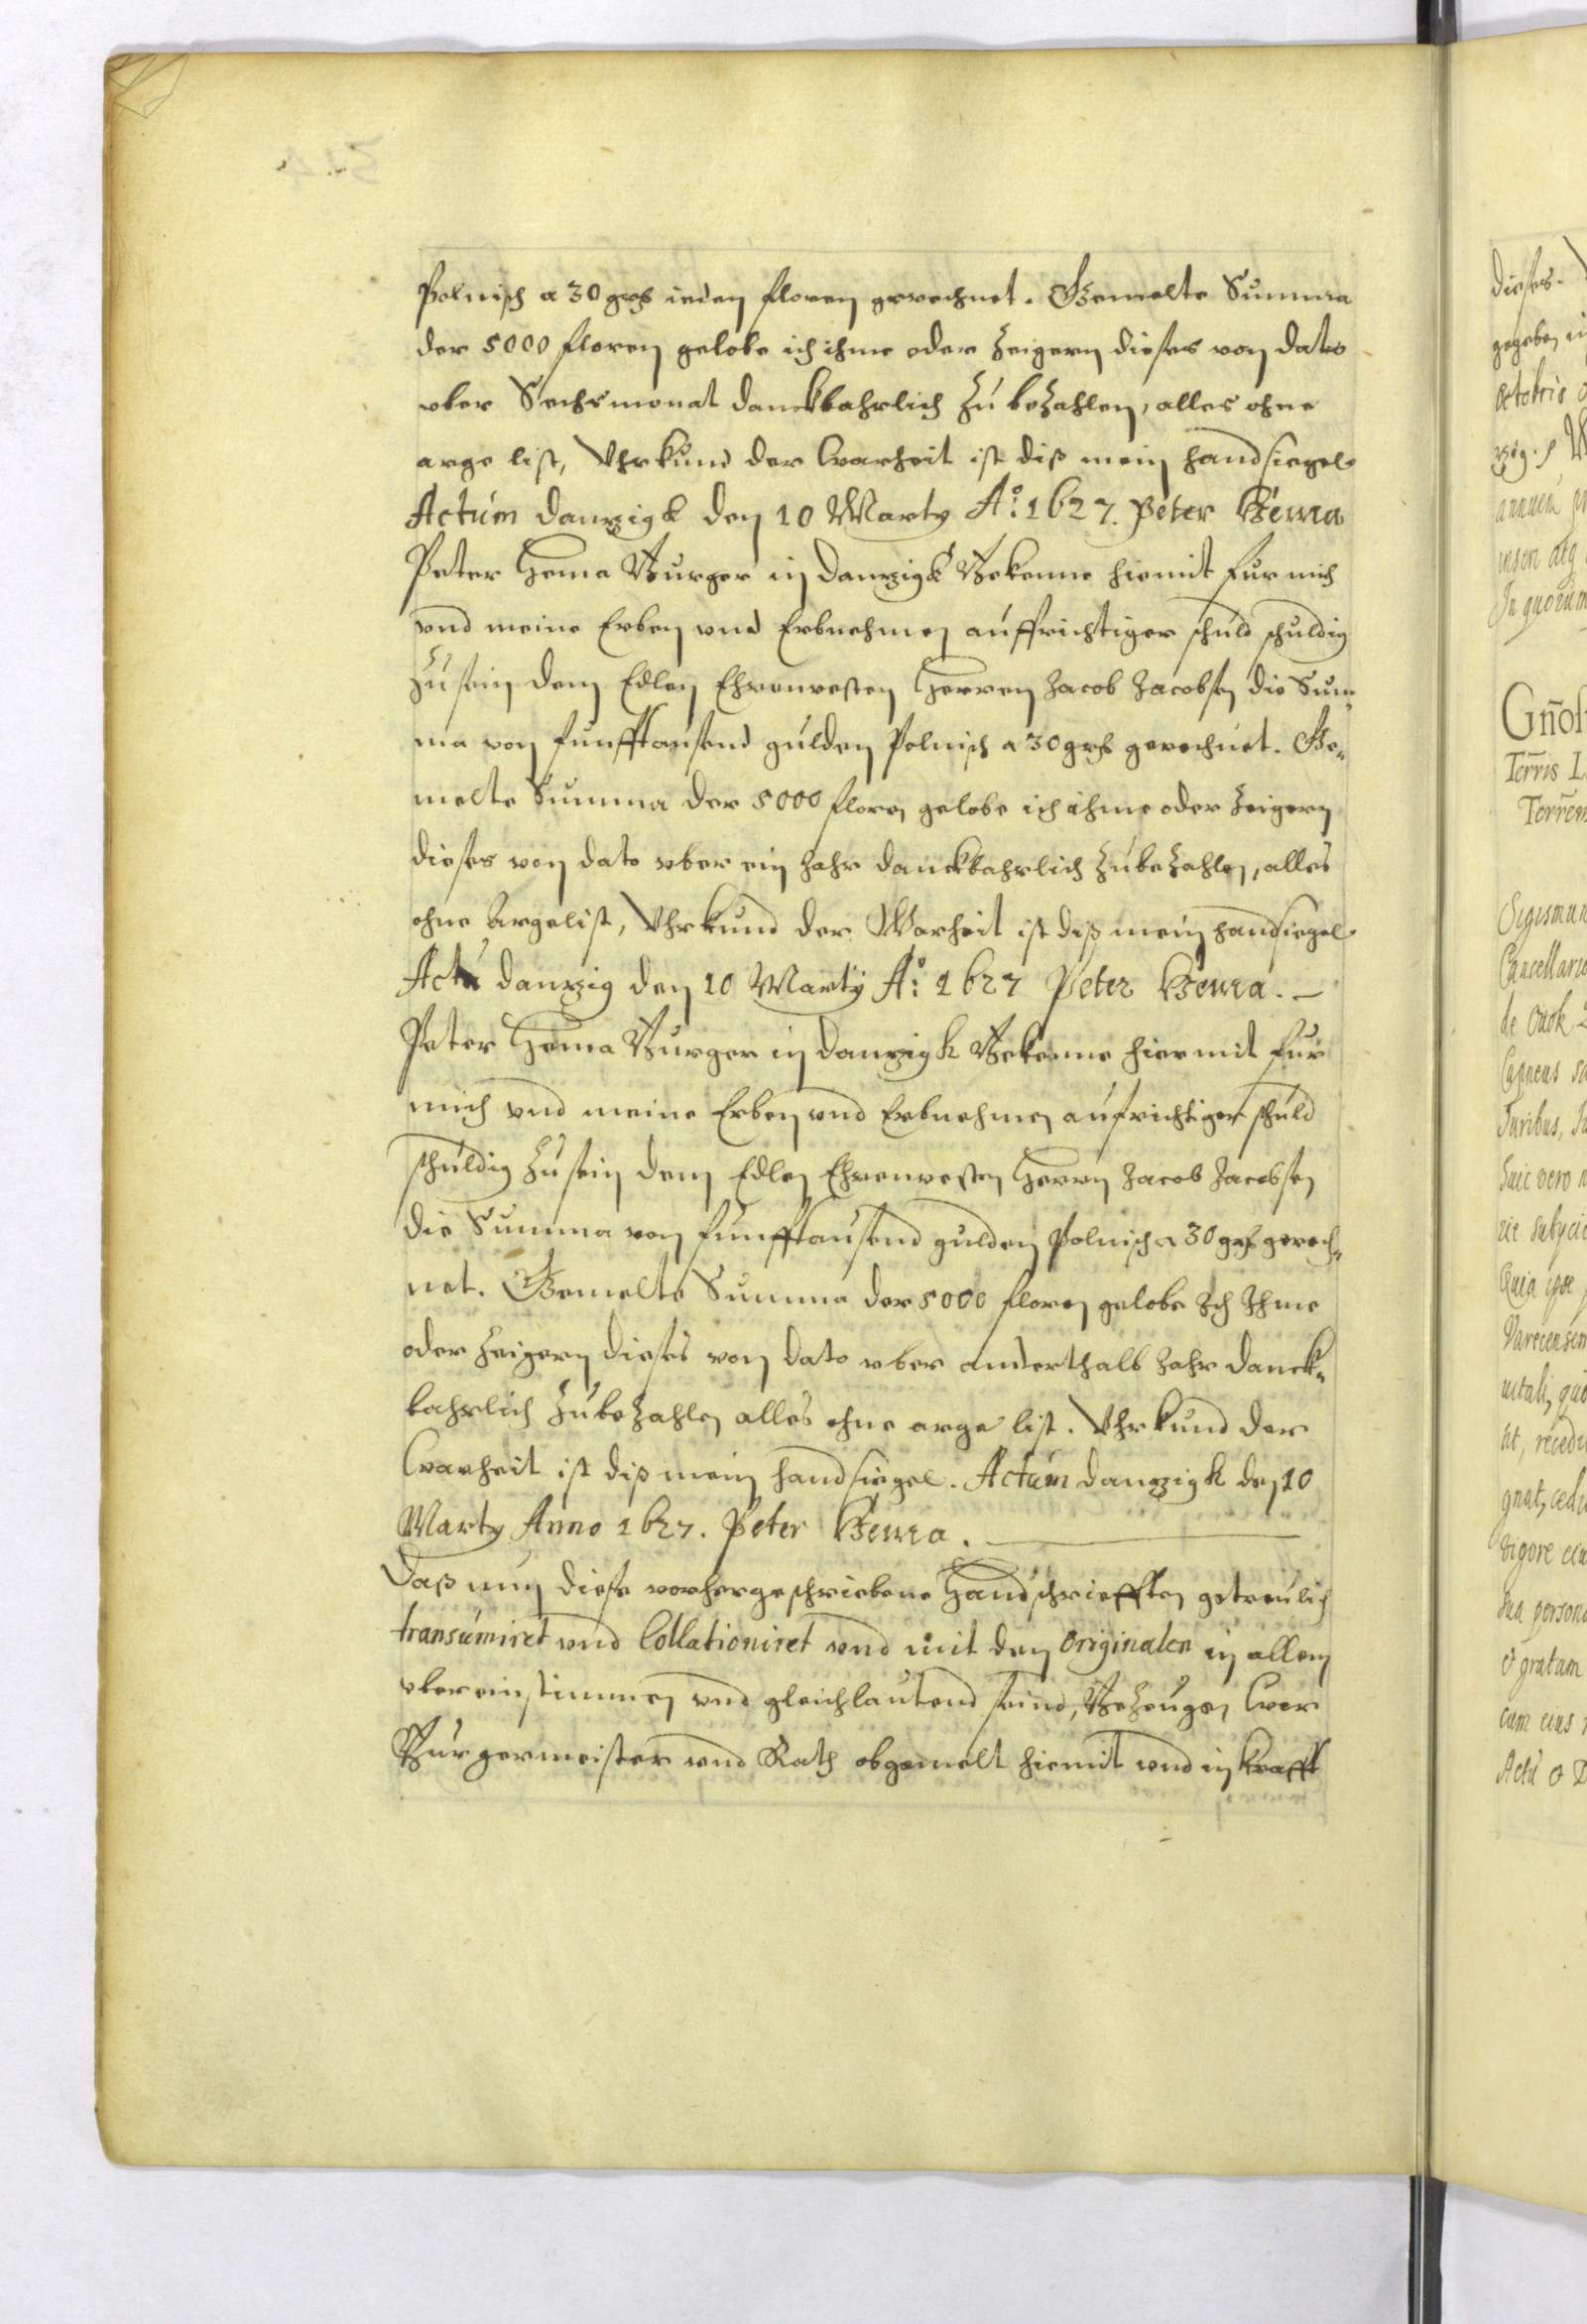 Polnisch a 30 grß ieden floren gerechnet. Gemelte Summa
der 5000 floren gelobe ich ihme oder Zeigern dieses von dato
vber Sechs monat danckbahrlich zu bezahlen, alles ohne
arge list, Vhrkund der Warheit ist diß mein handsiegel
Actúm Danzigk den 10 Marty Aº: 1627. Peter Hema
Peter Hema Burger in Danzigk Bekenne hiemit fur mich
vnd meine Erben vnd Erbnehmen auffrichtiger schuld schuldig
zu sein dem Edlen Ehrenvesten Herren Jacob Jacobsen die Sum„
ma von funfftausend gulden Polnisch a 30 grß gerechnet. Ge„
melte Summa der 5000 floren gelobe ich ihme oder Zeigern
dieses von dato vber ein Jahr danckbahrlich zubezahlen, alles
ohne Argelist, Vhrkund der Warheit ist diß mein handsiegel
Actú Danzig den 10 Marty Aº: 1627 Peter Hema. –
Peter Hema Burger in Danzigk Bekenne hiermit fur
mich vnd meine Erben vnd Erbnehmen aufrichtiger schuld
schuldig zu sein dem Edlen Ehrenvesten Herrn Jacob Jacobsen
die Summa von funfftausend gulden Polnisch a 30 grß gerech„
net. Gemelte Summa der 5000 floren gelobe Ich Ihme
oder Zeigern dieses von dato vber anderthalb Jahr danck„
bahrlich zubezahlen alles ohne arge list. Vhrkund der
Warheit ist diß mein handsiegel. Actúm Danzigk den 10
Marty Anno 1627. Peter Hema.
Daß nun diese vorhergeschriebene Handschriefften getreulich
transúmiret vnd Collationiret vnd mit den Originalen in allem
vbereinstimmen vnd gleichlautend seind, Bezeugen Wier
Burgermeister vnd Rath obgemelt hiemit vnd in krafft
dieses.
gegeben
octobris
Gn̄os
Terris
Sigismun
Actú